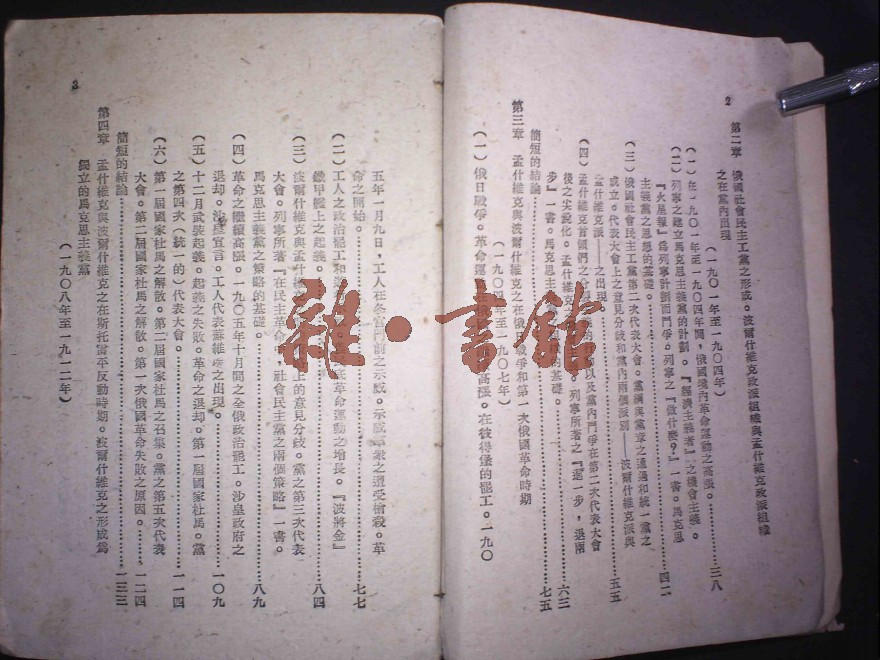 2
第二章 俄國社會民主工黨之形成。波爾什維克政派組織與孟什維克政派組織
之在黨內出現
(一九〇一年至一九〇四年)
(一)在一九〇一年至一九〇四年間,俄國境內革命運動之高漲。……三八
(二)列寧之建立馬克思主義黨的計劃。『經濟主義者』之機會主義。
『火星報』為列寧計劃而鬥爭。列寧之『做什麼?』一書。馬克思
主義黨之思想的基礎。……四二
(三)俄國社會民主工黨第二次代表大會。黨綱與黨章之通過和統一黨之
成立。代表大會上之意見分歧和黨內兩個派別——波爾什維克派與
孟什維克派——之出現。……五五
(四)孟什維克首領們之 以及黨內鬥爭在第二次代表大會
後之尖銳化。孟什維克 列寧所著之『進一步,退兩
步』一書。馬克思主 的基礎。……六三
簡短的結論……七五
第三章 孟什維克與波爾什維克之在俄日戰爭和第一次俄國革命時期
(一九〇四年至一九〇七年)
(一)俄日戰爭。革命運 在俄 高漲。在彼得堡的罷工。一九〇
五年一月九日,工人在冬宮門前之示威。示威羣眾之遭受槍殺。革
命之開始。……七七
(二)工人之政治罷工和 民革命運動之增長。『波將金』
鐵甲艦上之起義。……八四
(三)波爾什維克與孟什維克 上的意見分歧。黨之第三次代表
大會。列寧所著『在民主革命中 社會民主黨之兩個策略』一書。
馬克思主義黨之策略的基礎。……八九
(四)革命之繼續高漲。一九〇五年十月間之全俄政治罷工。沙皇政府之
退却。沙皇宣言。工人代表蘇維埃之出現。……一〇九
(五)十二月武裝起義。起義之失敗。革命之退却。第一屆國家杜馬。黨
之第四次(統一的)代表大會。……一一四
(六)第一屆國家杜馬之解散。第二屆國家杜馬之召集。黨之第五次代表
大會。第二屆國家杜馬之解散。第一次俄國革命失敗之原因。……一二四
簡短的結論……一三三
第四章 孟什維克與波爾什維克之在斯托雷平反動時期。波爾什維克之形成為
獨立的馬克思主義黨
(一九〇八年至一九一二年)
3
雜·書館